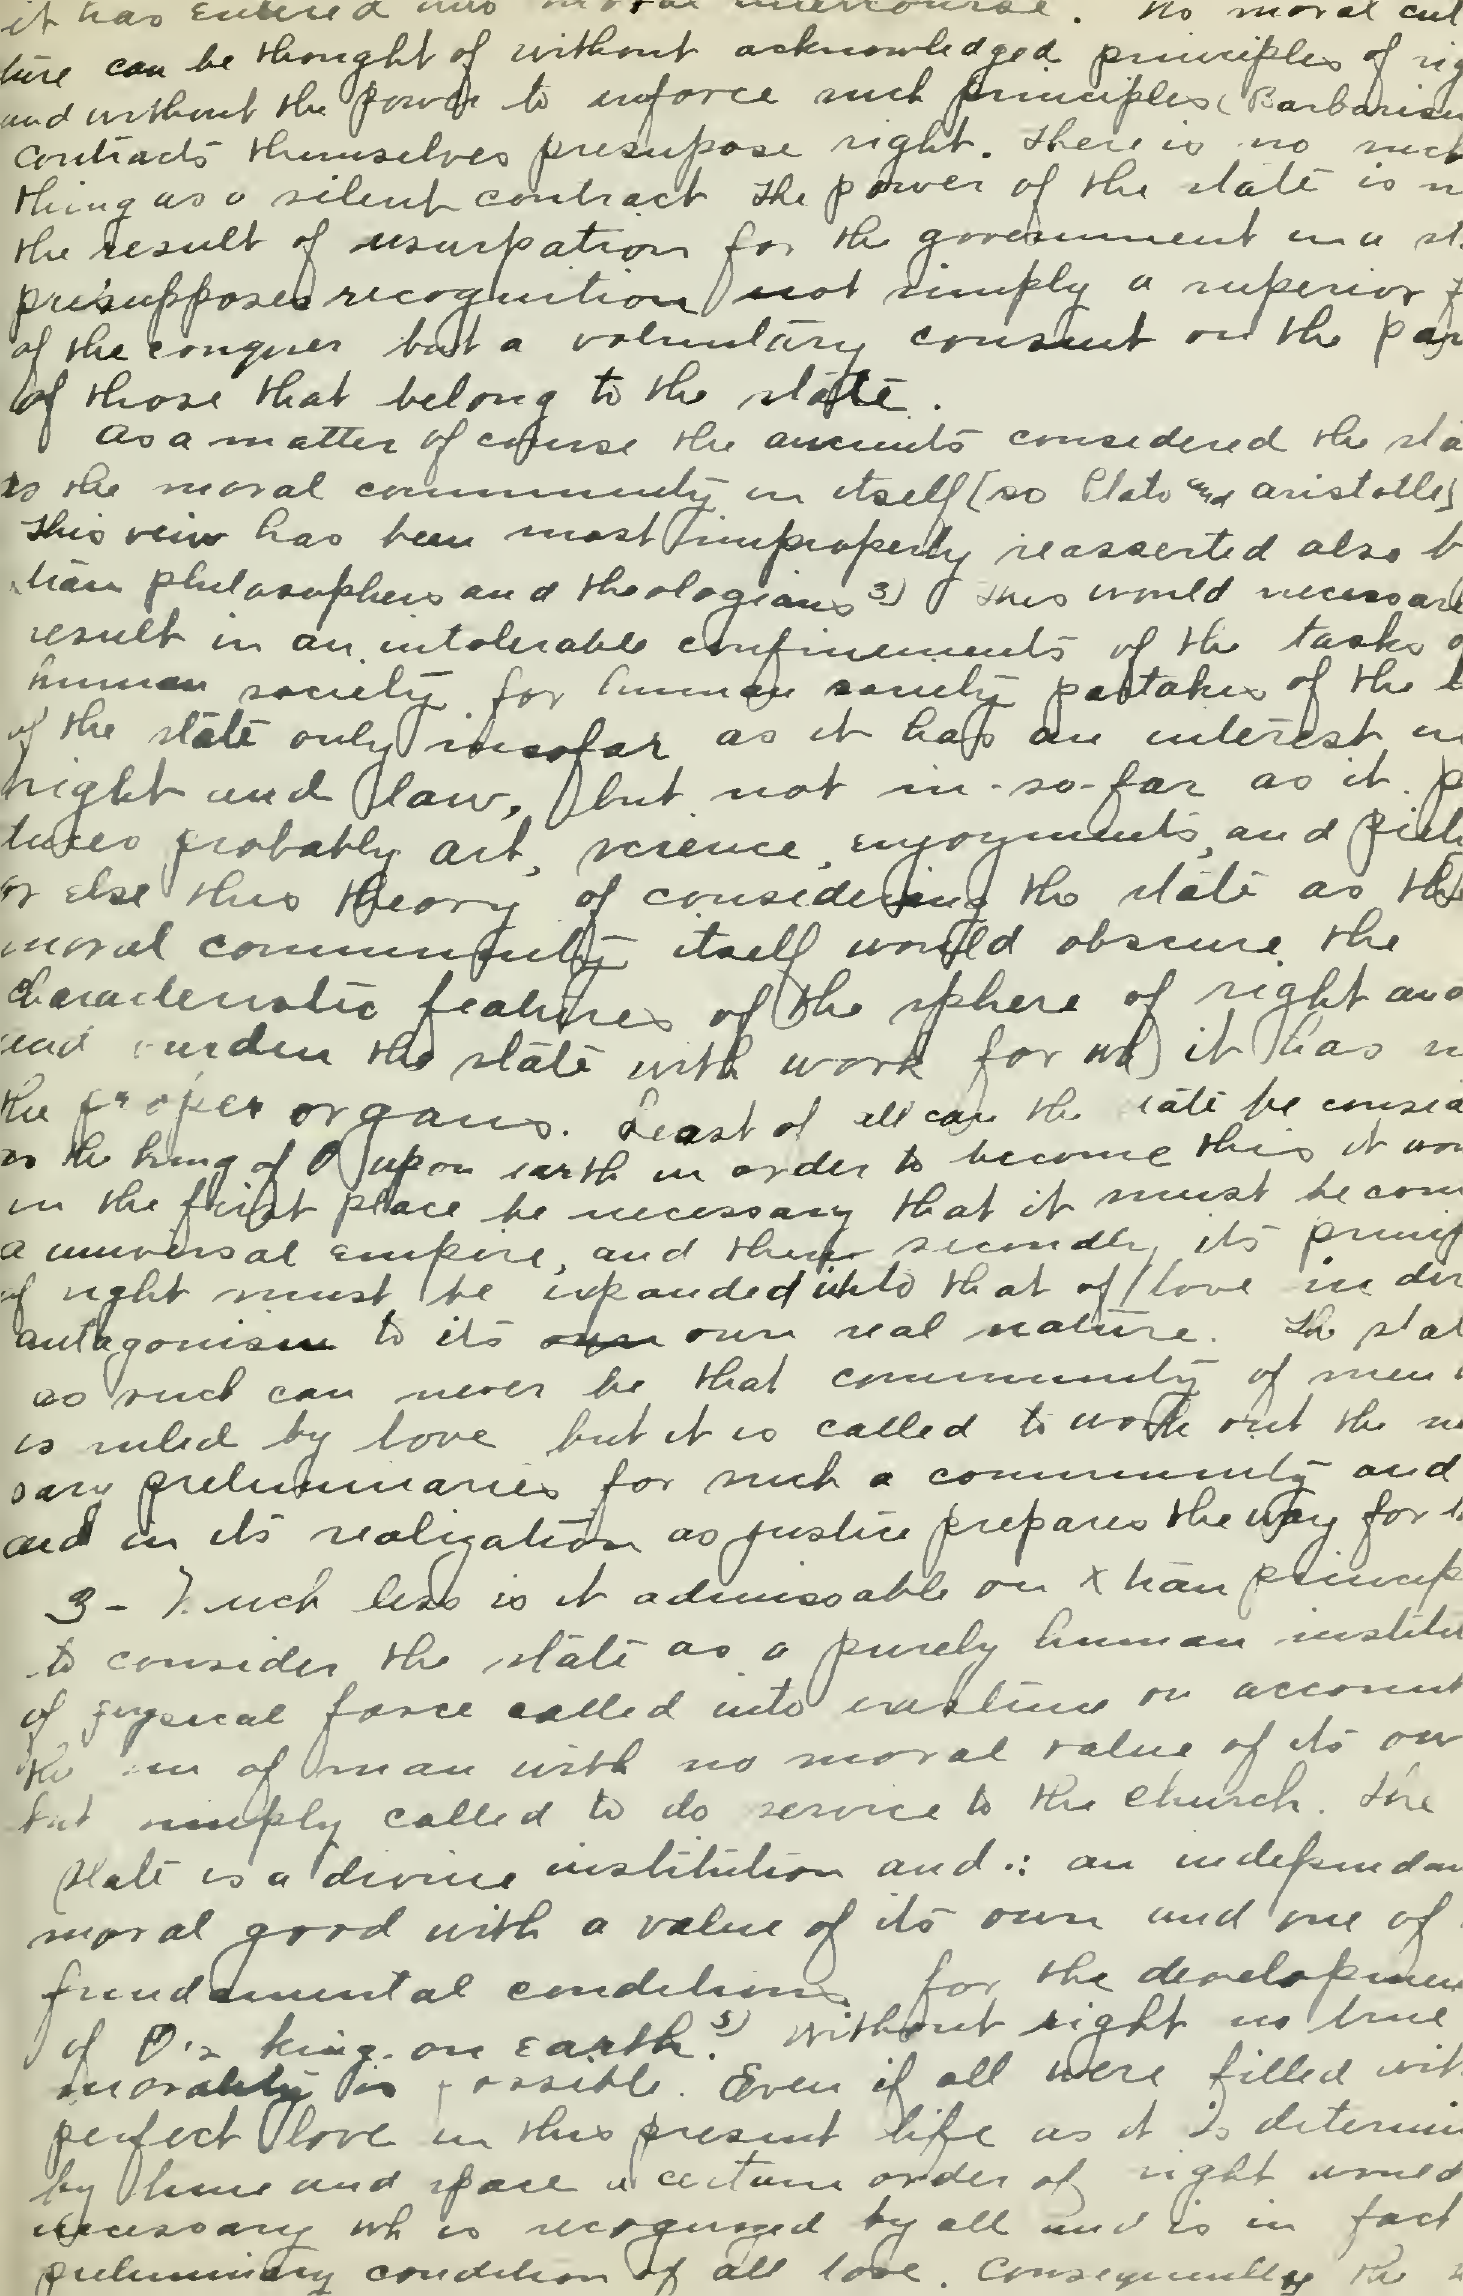 it has entered into moral intercourse. No moral cul
ture can be thought of without acknowledged principles of rig
and without the power to enforce such principles (Barbarism
Contracts themselves presupose right. There is no such
thing as a silent contract The power of the state is n
the result of usurpation for the government in a st
presupposes recognition not simply a superior f
of the conquer but a voluntary consent on the par
of those that belong to the state.
As a matter of course the ancients considered the sta
as the moral community in itself (so Plato and aristotle)
This veiw has been most improperly reasserted also b
tian philosophers and theologians 3) This would necessar
result in an intolerable confinements of the tasks o
human society for human society partakes of the l
of the state only insofar as it has an interest in
right and law, but not in-so-far as it p
tures probably art, science, enjoyments, and piety
or else this theory of considering the state as the
moral community itself would obscure the
characteristic features of the sphere of right and
and burden the state with work for wh it has n
the proper organs. Least of all can the state be consid
as the king of O upon earth in order to become this it wou
in the first place be necessary that it must becom
a universal empire, and then secondly its princip
of right must be expanded into that of love in dir
antagonism to its own own real nature. The stat
as such can never be that community of men
is ruled by love but it is called to work out the ne
sary preliminaries for such a community and
and in its realization as justice prepares the way for
3 - Much less is it admissable on Xtian princip
to consider the state as a purely human institu
of physical force called into existence on account
the sin of man with no moral value of its ow
but simply called to do service to the church. The
state is a divine institution and ∴ an independan
moral good with a value of its own and one of
fundamental conditions for the developmen
of O's king. on earth. 5) Without right no true
morality is possible. Even if all were filled wit
perfect love in this present life as it is determin
by time and space a certain order of right would
necessary wh is recognized by all and is in fact
preliminary condition of all love. Consequently the